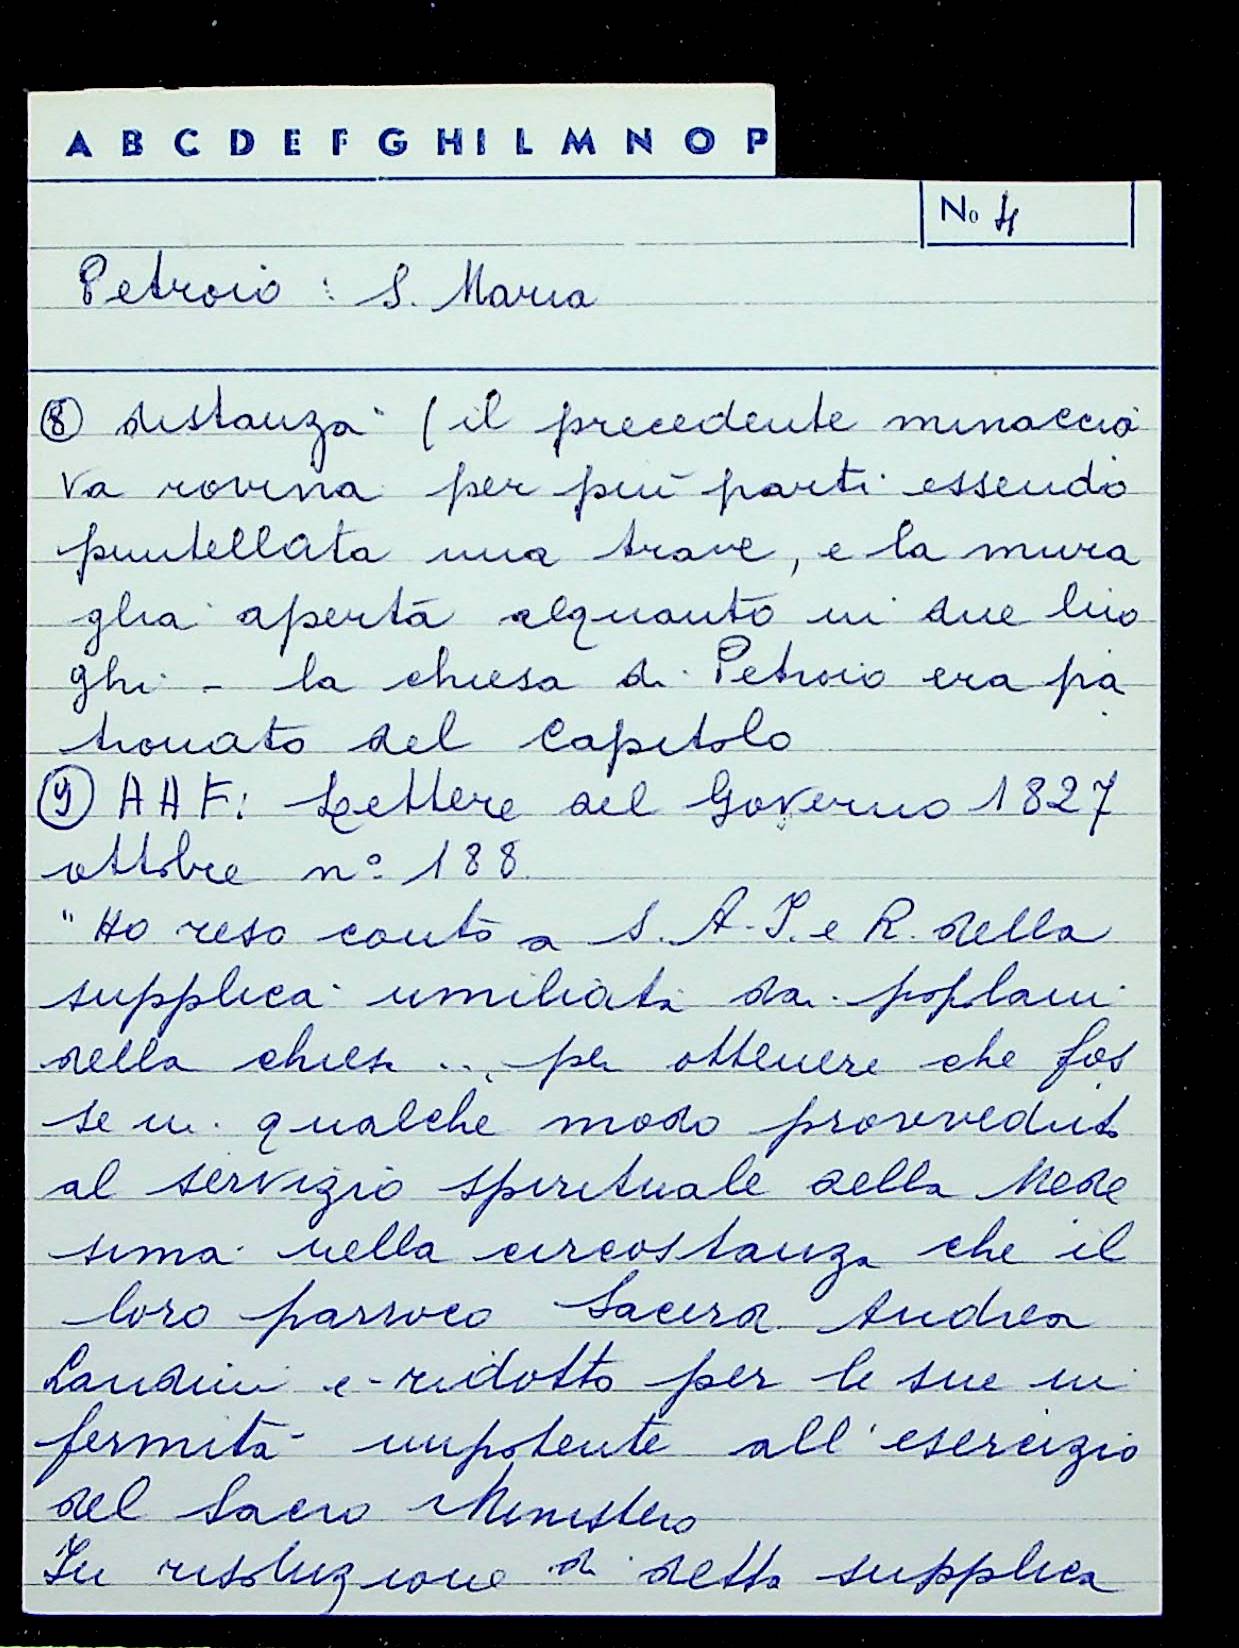 A B C D E F G H I L M N O P
No 4
Petroio : S. Maria
⑧ distanza" (il precedente minaccia
va rovina per più parti essendo
puntellata una trave, e la mura
glia aperta alquanto in due luo
ghi - la chiesa di Petroio era pa
tronato del Capitolo
⑨ AAF: Lettere del Governo 1827
ottobre n° 188
"Ho reso conto a S. A. I. e R. della
supplica umiliata da popolani
della chiesa ... per ottenere che fos
se in qualche modo provveduto
al servizio spirituale della Mede
sima nella circostanza che il
loro parroco Sacerd. Andrea
Landini è ridotto per le sue in
fermità impotente all'esercizio
del Sacro Ministero
In risoluzione di detta supplica